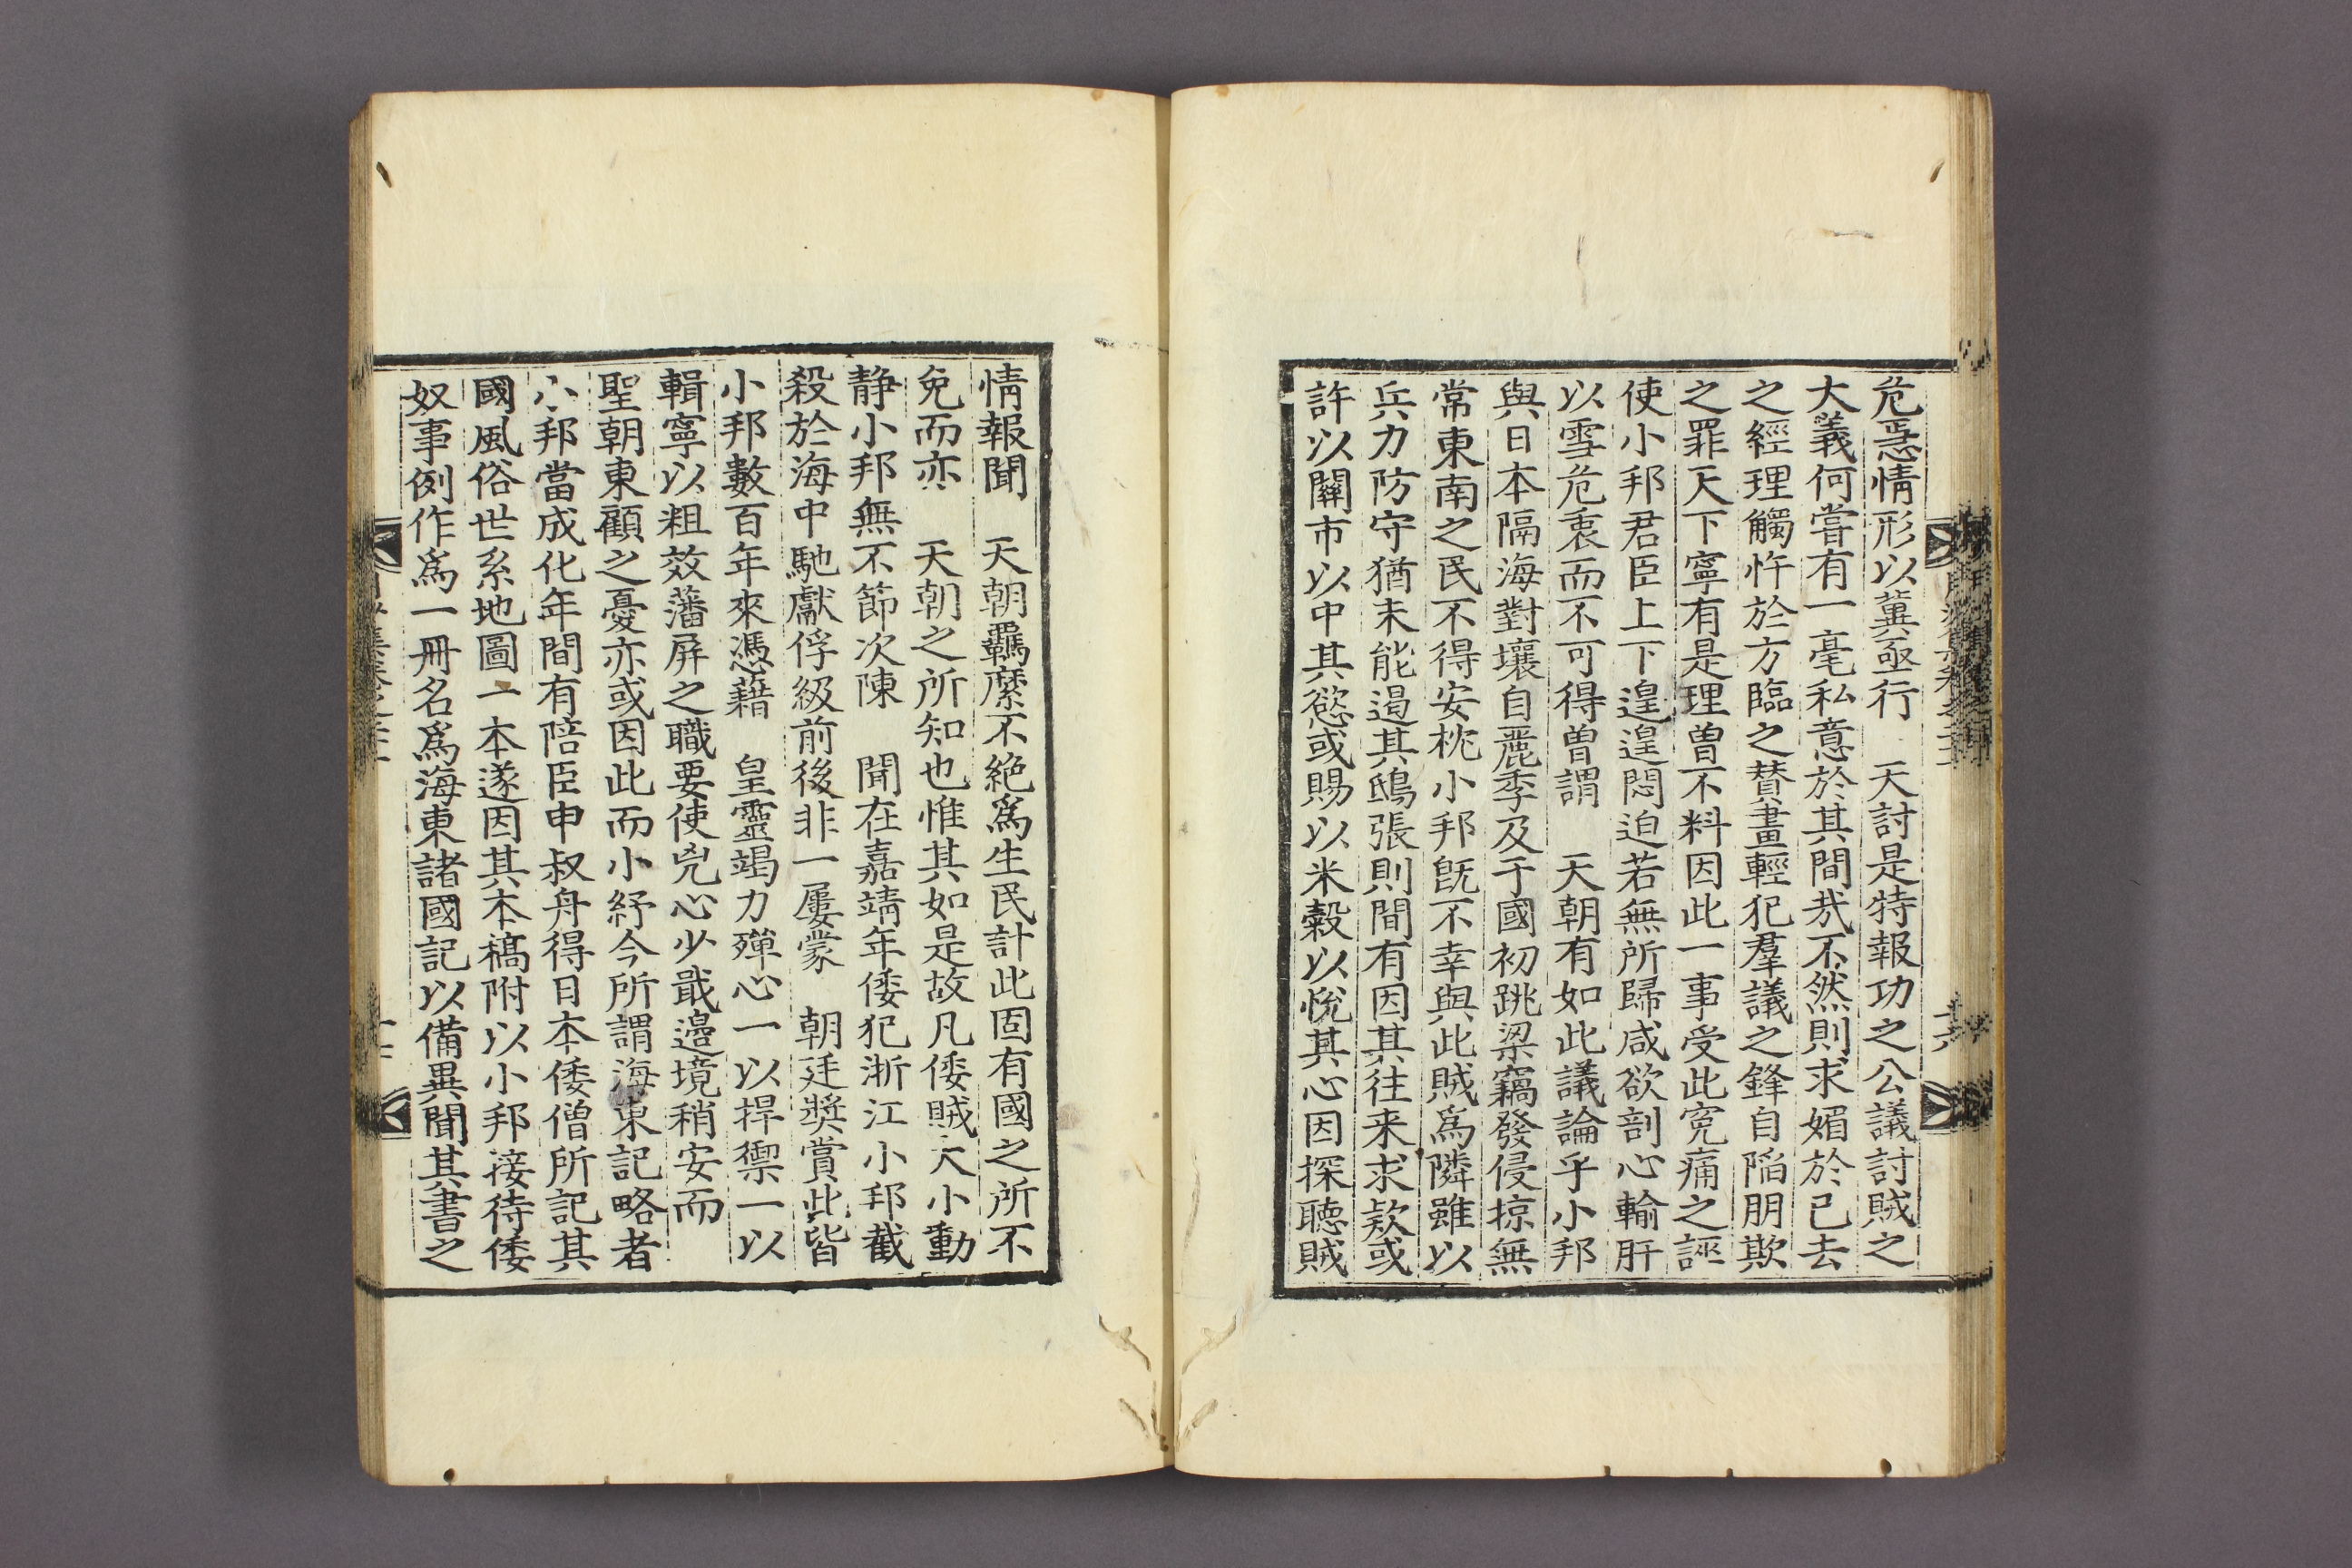 危惡情形以冀亟行 天討是特報功之公議討賊之
大義何嘗有一毫私意於其間㢤不然則求媚於已去
之經理觸忤於方臨之賛畫輕犯羣議之鋒自陷朋欺
之罪天下寧有是理曽不料因此一事受此寃痛之誣
使小邦君臣上下遑遑悶迫若無所歸咸欲剖心輸肝
以雪危衷而不可得曽謂 天朝有如此議論乎小邦
與日本隔海對壤自麗季及于國初跳梁竊發侵掠無
常東南之民不得安枕小邦旣不幸與此賊爲隣雖以
兵力防守猶未能遏其鴟張則間有因其往来求欵或
許以關市以中其慾或賜以米糓以悅其心因探聽賊
情報聞 天朝羈縻不絶爲生民計此固有國之所不
免而亦 天朝之所知也惟其如是故凡倭賊大小動
静小邦無不節次陳 聞在嘉靖年倭犯浙江小邦截
殺於海中馳獻俘級前後非一屢蒙 朝廷奬賞此皆
小邦數百年來憑藉 皇靈竭力殫心一以捍禦一以
輯寧以粗效藩屏之職要使兇心少戢邉境稍安而
聖朝東顧之憂亦或因此而小紓今所謂海東記略者
小邦當成化年間有陪臣申叔舟得日本倭僧所記其
國風俗世系地圖一本遂因其本稿附以小邦接待倭
奴事例作爲一冊名爲海東諸國記以備異聞其書之